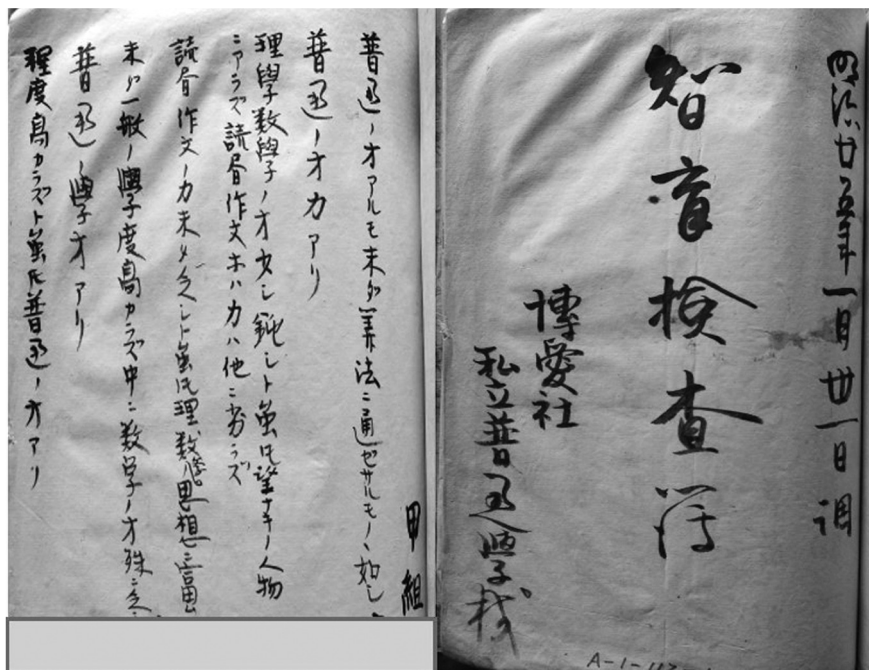 明治廿五年一月廿一日調
智育検査簿
博愛社
私立普通學校
A-1-
甲組
普通ノ才アルモ未タ算法ニ通ゼサルモノヽ如シ
普通ノ才力アリ
理學数學ノ才少シ鈍シト雖モ望ナキノ人物
ニアラズ読書作文ホハ力ハ他ニ劣ラズ
読書作文ノ力未タ乏シト雖モ理数學思想ニ富
未タ一般ノ學度高カラズ中ニ数学ノ才殊ニ乏
普通ノ學才アリ
程度高カラズト雖モ普通ノ才アリ